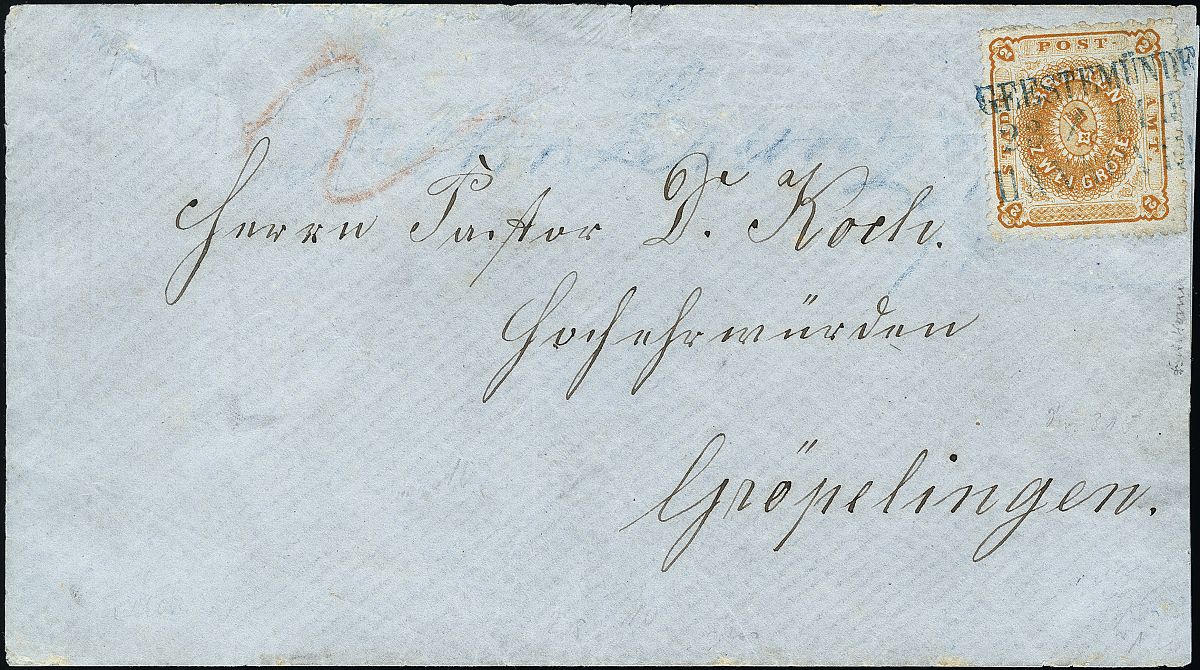 POST
STADT AMT.
BREMEN
ZWEI GROTE
2 2
2 2
GEESTEMÜNDE
2
Herrn Pastor D. Koch.
Hochehrwürden
Gröpelingen.